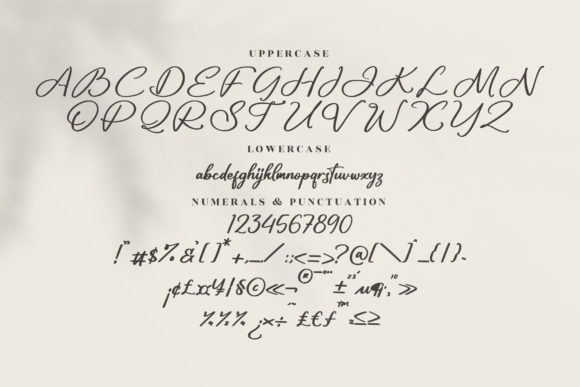 UPPERCASE
ABCDEFGHIJKLMN
OPQRSTUVWXYZ
LOWERCASE
abcdefghijklmnopqrstuvwxyz
NUMERALS & PUNCTUATION
1234567890
!"#$%&'()*+,-./:;<=>?@[\]^_{|}~
¡¢£¤¥¦§©«¬®¯°±²³´µ¶·¸¹º»
¼½¾¿×÷ ₤€ƒ ™ ≤≥